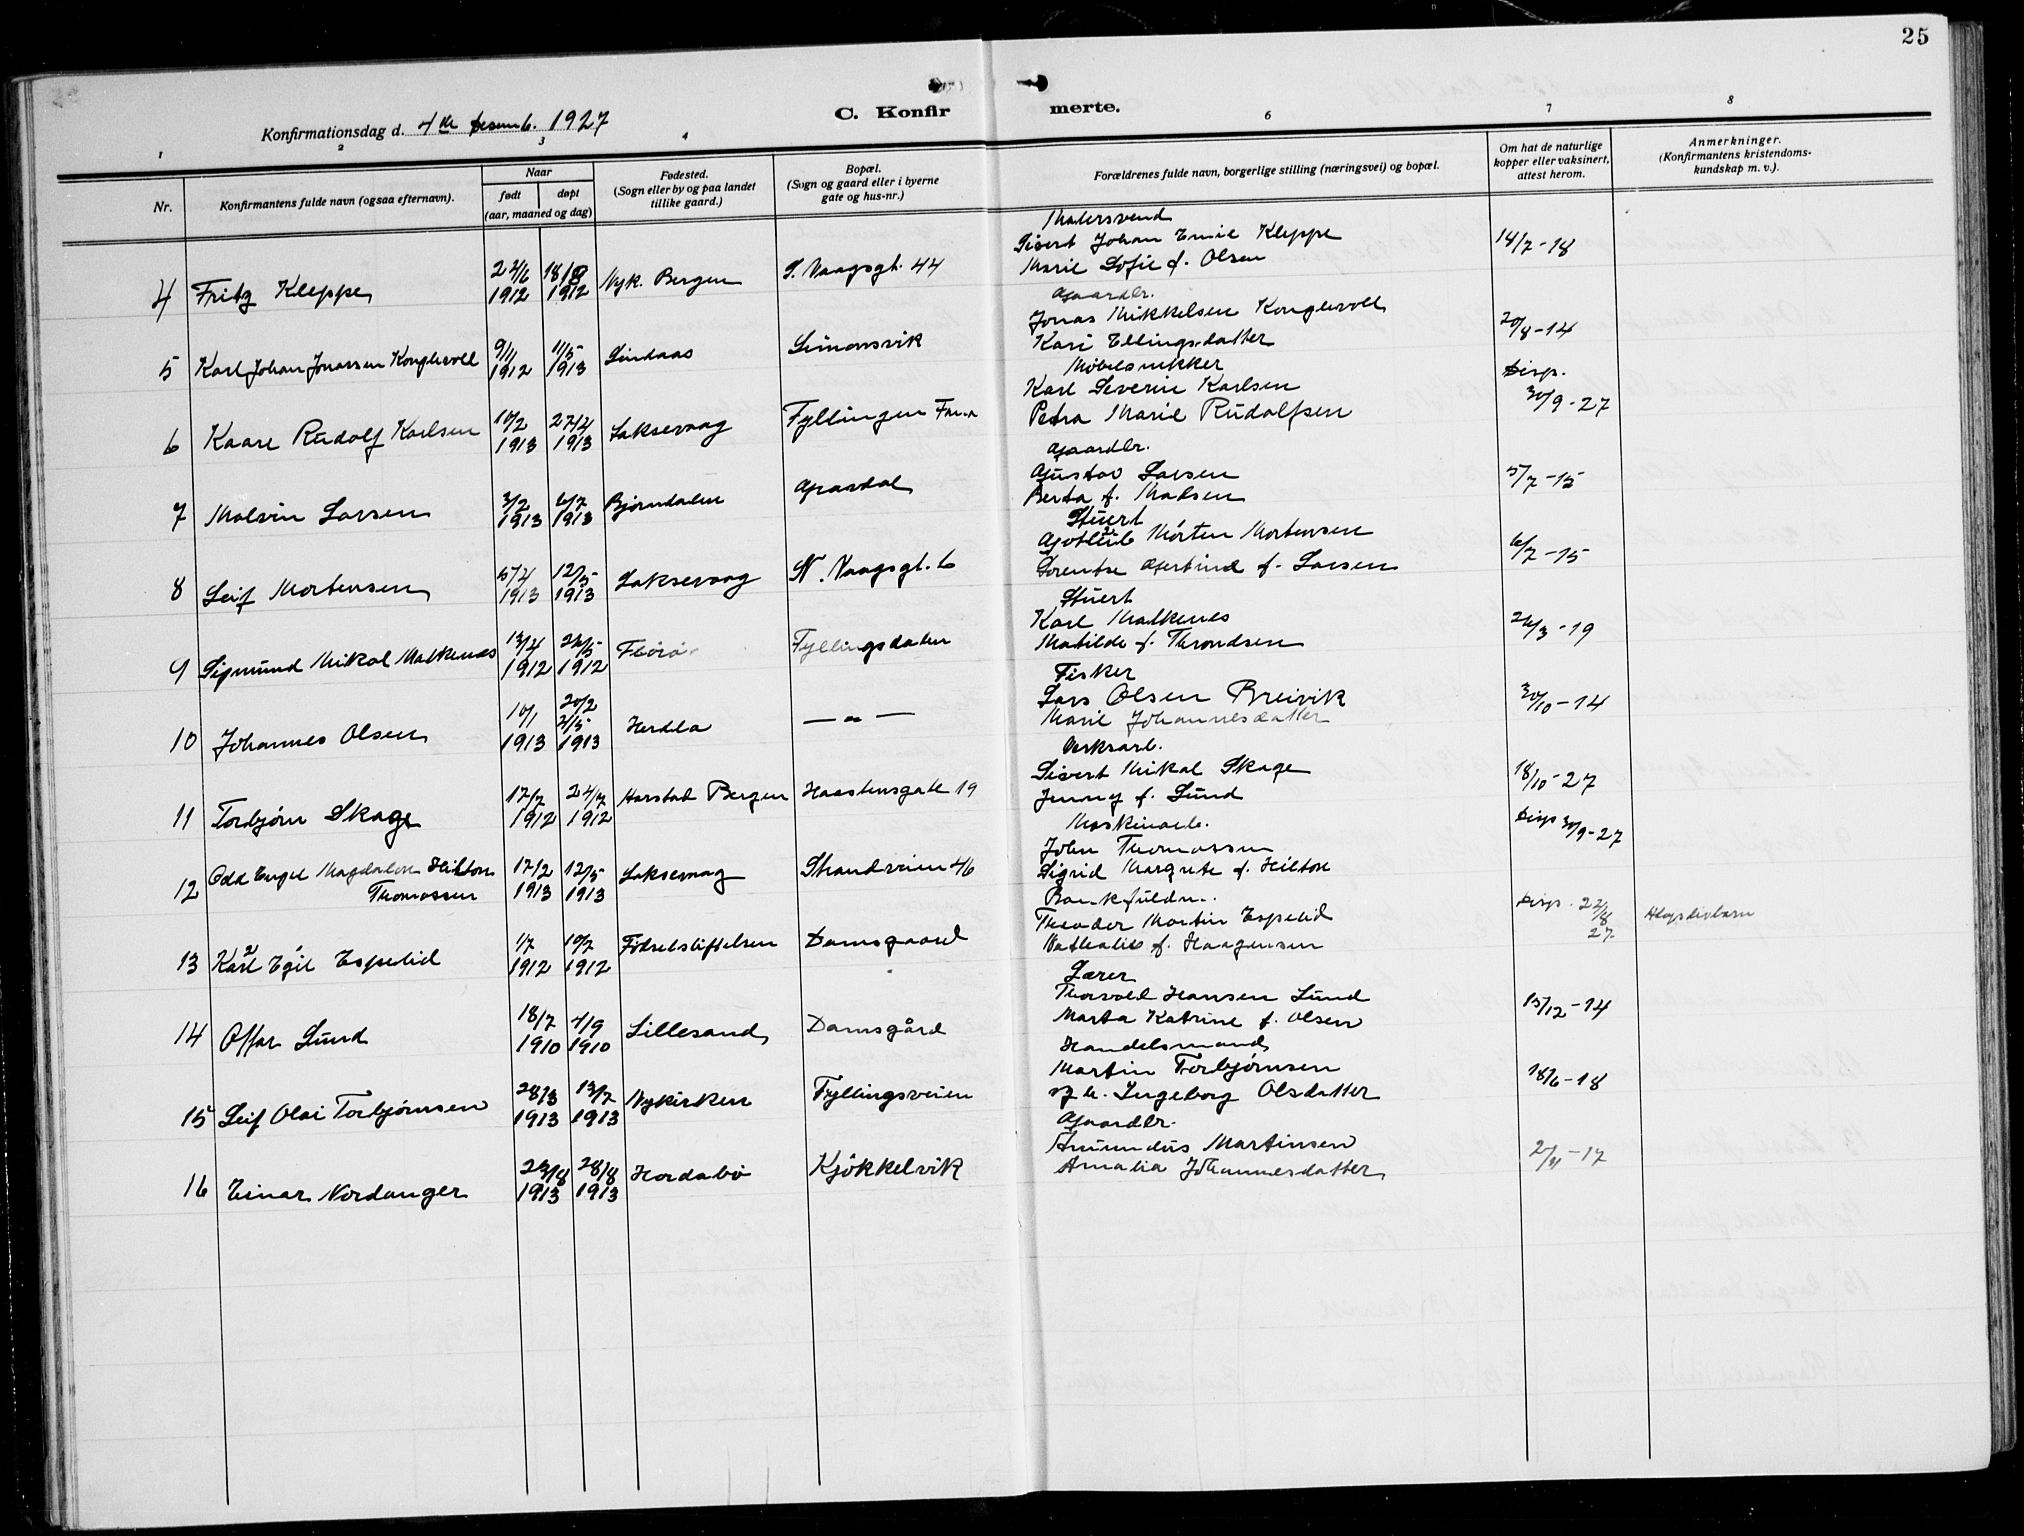 25
C. Konfirmerte.
Konfirmationsdag d. 4de desemb. 1927
1 2 3 4 6 7 8
Nr.
Konfirmantens fulde navn (ogsaa efternavn).
Naar
født døpt
(aar, maaned og dag)
Fødested.
(Sogn eller by og paa landet
tillike gaard.)
Bopæl.
(Sogn og gaard eller i byerne
gate og hus-nr.)
Forældrenes fulde navn, borgerlige stilling (næringsvei) og bopæl.
Om hat de naturlige
kopper eller vaksinert,
attest herom.
Anmerkninger.
(Konfirmantens kristendoms-
kundskap m. v.).
Malersvend
Sivert Johan Emil Kleppe 14/7-18
Marie Sofie f. Olsen
4 Fritz Kleppe 1912 1912 Nyk. Bergen S. Vaagsgt. 44
Gaardbr.
Jonas Mikkelsen Konglevoll 20/8-14
Kari Ellingsdatter
5 Karl Johan Jonassen Konglevoll 9/11 1912 11/5 1913 Lindaas Simonsvik
Møbelsnekker Disp.
Karl Severin Karlsen 30/9-27
Petra Marie Rudolfsen
6 Kaare Rudolf Karlsen 10/2 1913 27/4 1913 Laksevaag Fyllingen
Gaardbr.
Gustav Larsen 5/7-15
Berta f. Madsen
7 Malvin Larsen 3/2 1913 6/7 1913 Bjørndalen Grasdal
Stuert
Gotlieb Morten Mortensen 6/7-15
Lorentse Gertine f. Larsen
8 Leif Mortensen 5/4 1913 12/5 1913 Laksevaag N. Vaagsgt. 6
Stuert
Karl Malkenes 26/3-19
Matilde f. Throndsen
9 Sigmund Mikal Malkenæs 13/4 1912 26/5 1912 Florø Fyllingsdalen
Fisker
Lars Olsen Breivik 30/10-14
Marie Johannesdatter
10 Johannes Olsen 10/1 1913 20/2 2/5 1913 Herdla — " —
Verksarb.
Sivert Mikal Skage 18/10-27
Jenny f. Lund
11 Torbjørn Skage 17/7 1912 24/7 1912 Harstad Bergen Haastensgate 19
Maskinarb. Disp 30/9-27
John Thomassen
Sigrid Margrete f. Hilton
12 Odd Engel Magdalon Hilton Thomassen 17/2 1913 12/5 1913 Laksevaag Strandveien 46
Bankfuldm. Disp. 22/8 27
Theodor Martin Espelid Pleiebarn
Nathalie f. Haagensen
13 Karl Egil Espelid 1/7 1912 10/7 1912 Fødselstiftelsen Damsgaard
Lærer
Thorvald Hansen Lund 15/12-14
Marta Katrine f. Olsen
14 Offar Lund 18/7 1910 4/9 1910 Lillesand Damsgård
Handelsmand
Martin Torbjørnsen 18/6-18
og h. Ingeborg Olsdatter
15 Leif Olai Torbjørnsen 28/3 1913 13/7 1913 Nykirken Fyllingsveien
Gaardbr.
Amundus Martinsen 2/11-17
Amalia Johannesdatter
16 Einar Nordanger 23/8 1913 28/8 1913 Hordabø Kjøkkelvik